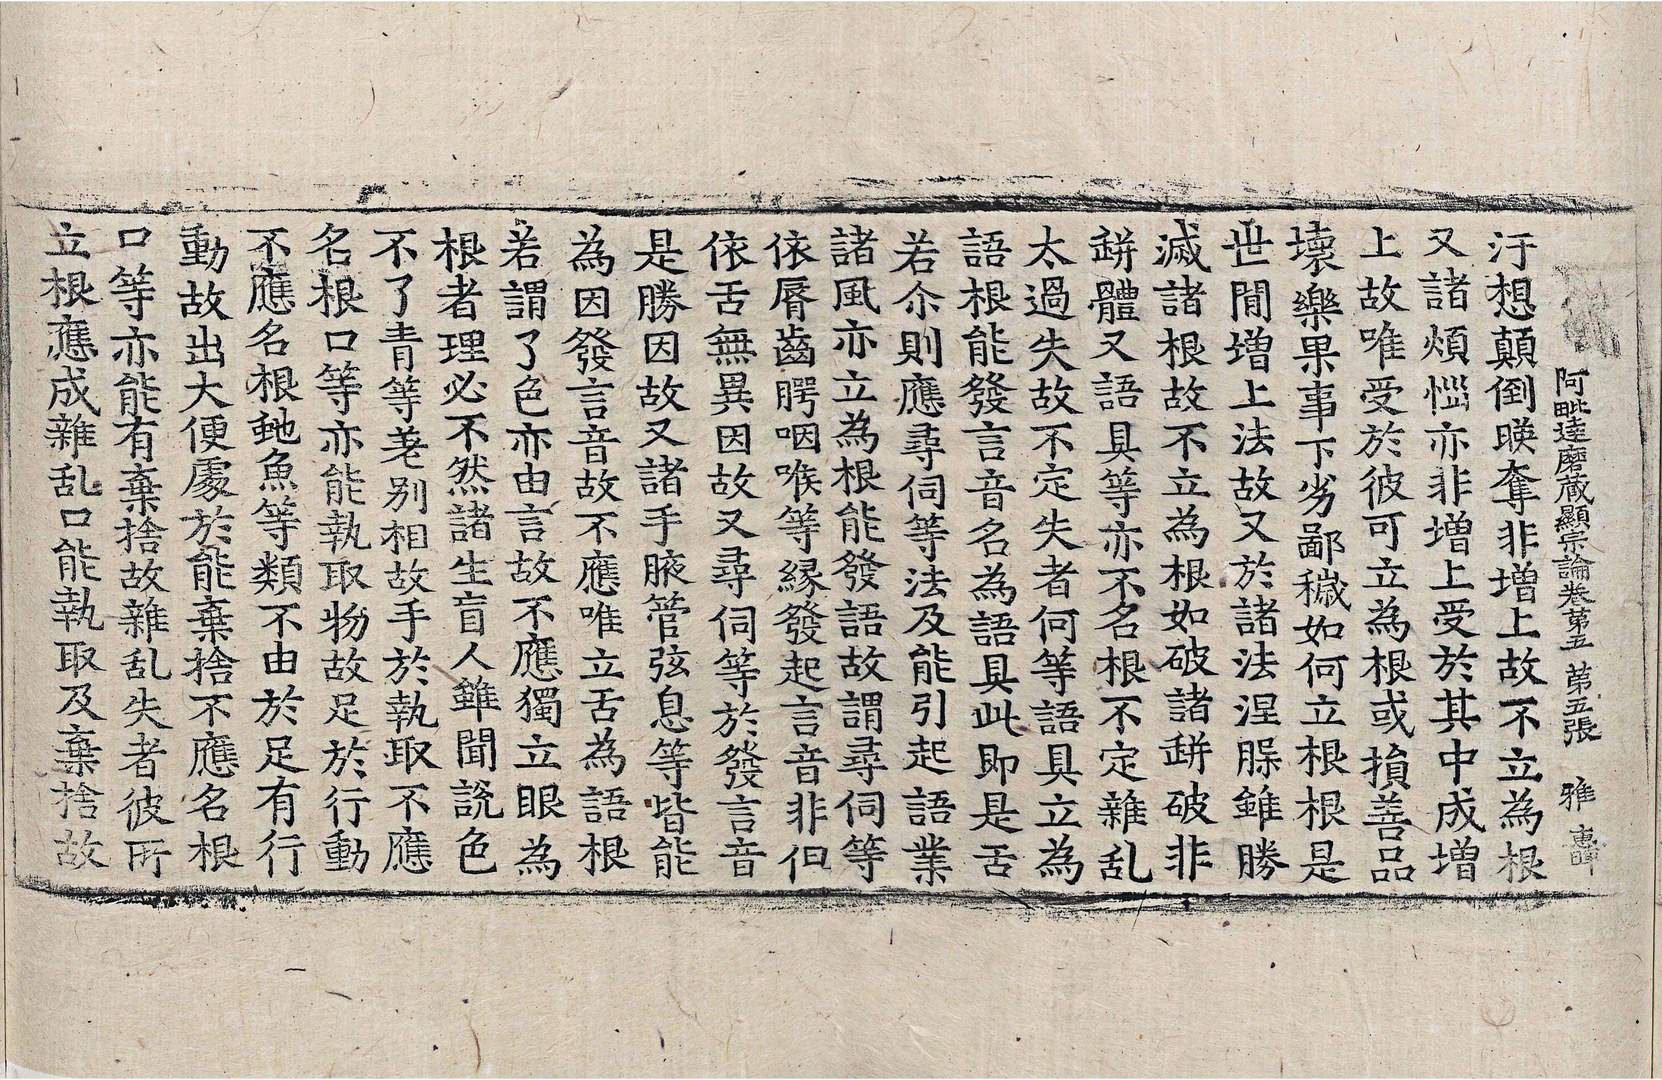 阿毗達磨藏顯宗論卷第五 第五張 雅
汙想顛倒暎奪非增上故不立為根
又諸煩惱亦非增上受於其中成增
上故唯受於彼可立為根或損善品
壞樂果事下劣鄙穢如何立根根是
世間增上法故又於諸法涅槃雖勝
滅諸根故不立為根如破諸缾破非
缾體又語具等亦不名根不定雜乱
太過失故不定失者何等語具立為
語根能發言音名為語具此即是舌
若尒則應尋伺等法及能引起語業
諸風亦立為根能發語故謂尋伺等
依脣齒腭咽喉等緣發起言音非但
依舌無異因故又尋伺等於發言音
是勝因故又諸手腋管弦息等皆能
為因發言音故不應唯立舌為語根
若謂了色亦由言故不應獨立眼為
根者理必不然諸生盲人雖聞說色
不了青等差別相故手於執取不應
名根口等亦能執取物故足於行動
不應名根虵魚等類不由於足有行
動故出大便處於能棄捨不應名根
口等亦能有棄捨故雜乱失者彼所
立根應成雜乱口能執取及棄捨故